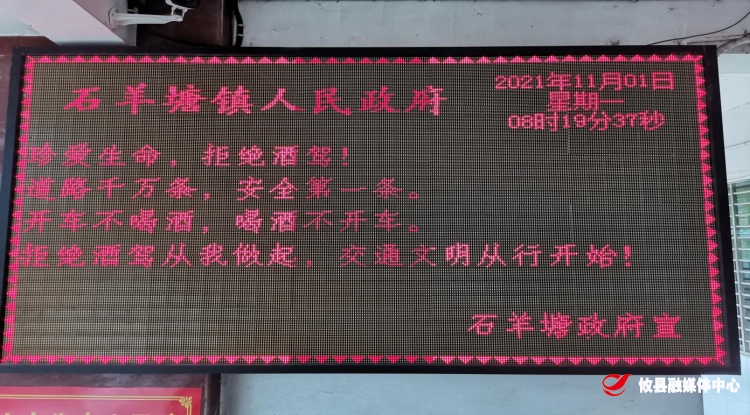 石羊塘镇人民政府
2021年11月01日
星期一
08时19分37秒
珍爱生命，拒绝酒驾！
道路千万条，安全第一条。
开车不喝酒，喝酒不开车。
拒绝酒驾从我做起，交通文明从行开始！
石羊塘政府宣
攸县融媒体中心